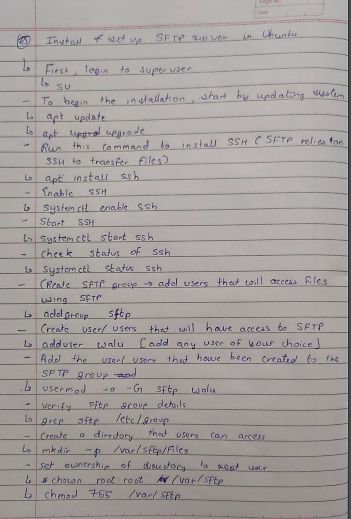 Install & set up SFTP server in Ubuntu
↳ First, login to superuser
↳ su
- To begin the installation, start by updating system
↳ apt update
↳ apt upgrade
- Run this command to install SSH (SFTP relies on
SSH to transfer files)
↳ apt install ssh
- Enable SSH
↳ systemctl enable ssh
- Start SSH
↳ systemctl start ssh
- check status of ssh
↳ systemctl status ssh
- Create SFTP group → add users that will access files
using SFTP
↳ addgroup sftp
- Create user/users that will have access to SFTP
↳ adduser walu [add any user of your choice]
- Add the user/users that have been created to the
SFTP group
↳ usermod -a -G sftp walu
- verify sftp group details
↳ grep sftp /etc/group
- Create a directory that users can access
↳ mkdir -p /var/sftp/Files
- set ownership of directory to root user
↳ chown root:root /var/sftp
↳ chmod 755 /var/sftp